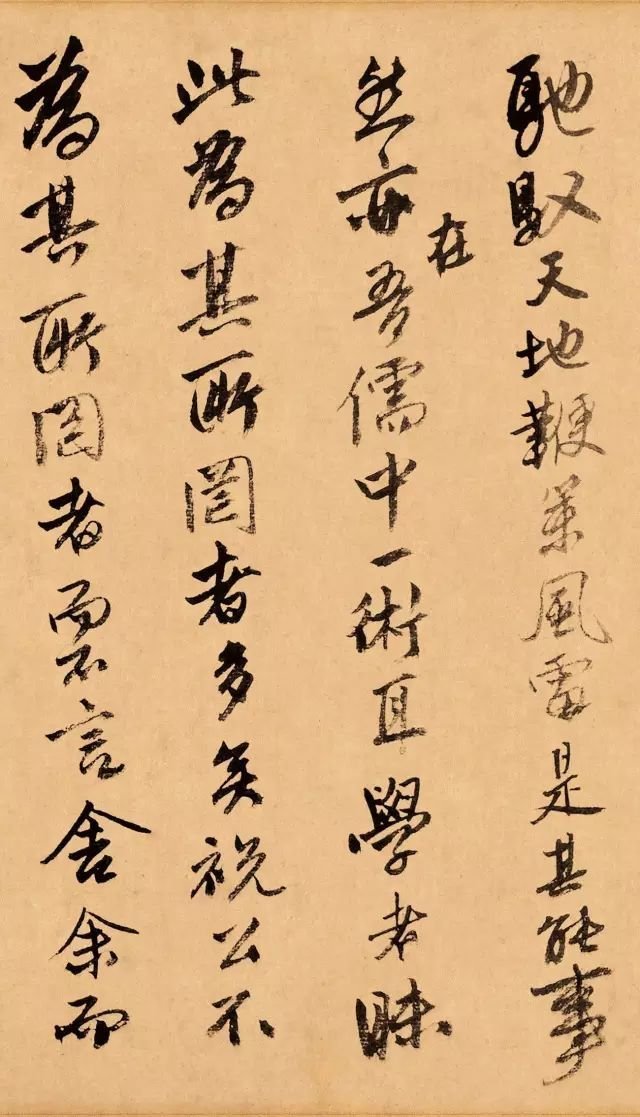 馳馭天地鞭策風雷是其能事
然亦在吾儒中一術耳學者昧
此為其所罔者多矣祝公不
為其所罔者而不言舍余而